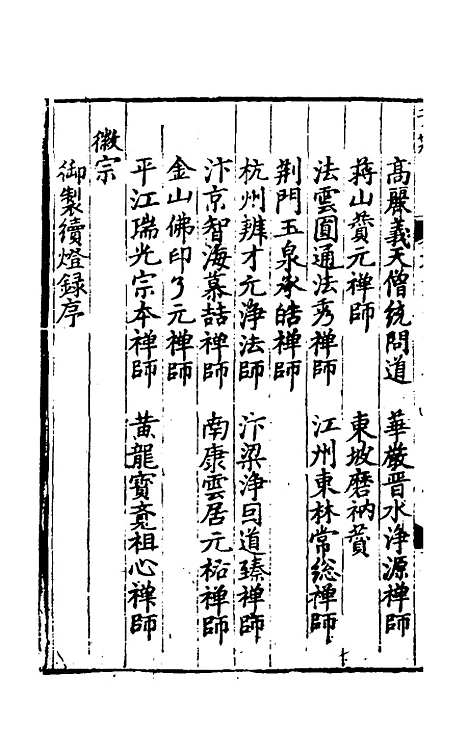 高麗義天僧統問道　華嚴晋水净源禅師
蒋山賛元禅師　東坡磨衲賛
法雲圎通法秀禅師　江州東林常總禅師
荆門玉泉承皓禅師
杭州辨才元淨法師　汴梁淨因道臻禅師
汴京智海慕喆禅師　南康雲居元祐禅師
金山佛印了元禅師
平江瑞光宗本禅師　黄龍寳覺祖心禅師
徽宗
御製續燈録序